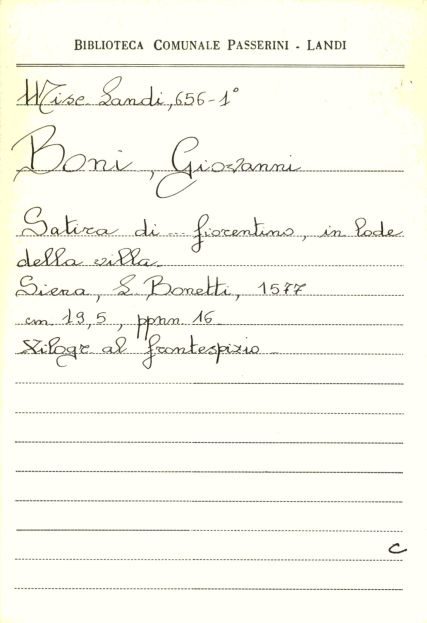 BIBLIOTECA COMUNALE PASSERINI - LANDI
Misc. Landi, 656-1°
Boni, Giovanni
Satira di ... fiorentino, in lode
della villa.
Siena, L. Bonetti, 1577
cm 19,5, ppnn 16.
Xilogr al frontespizio
C